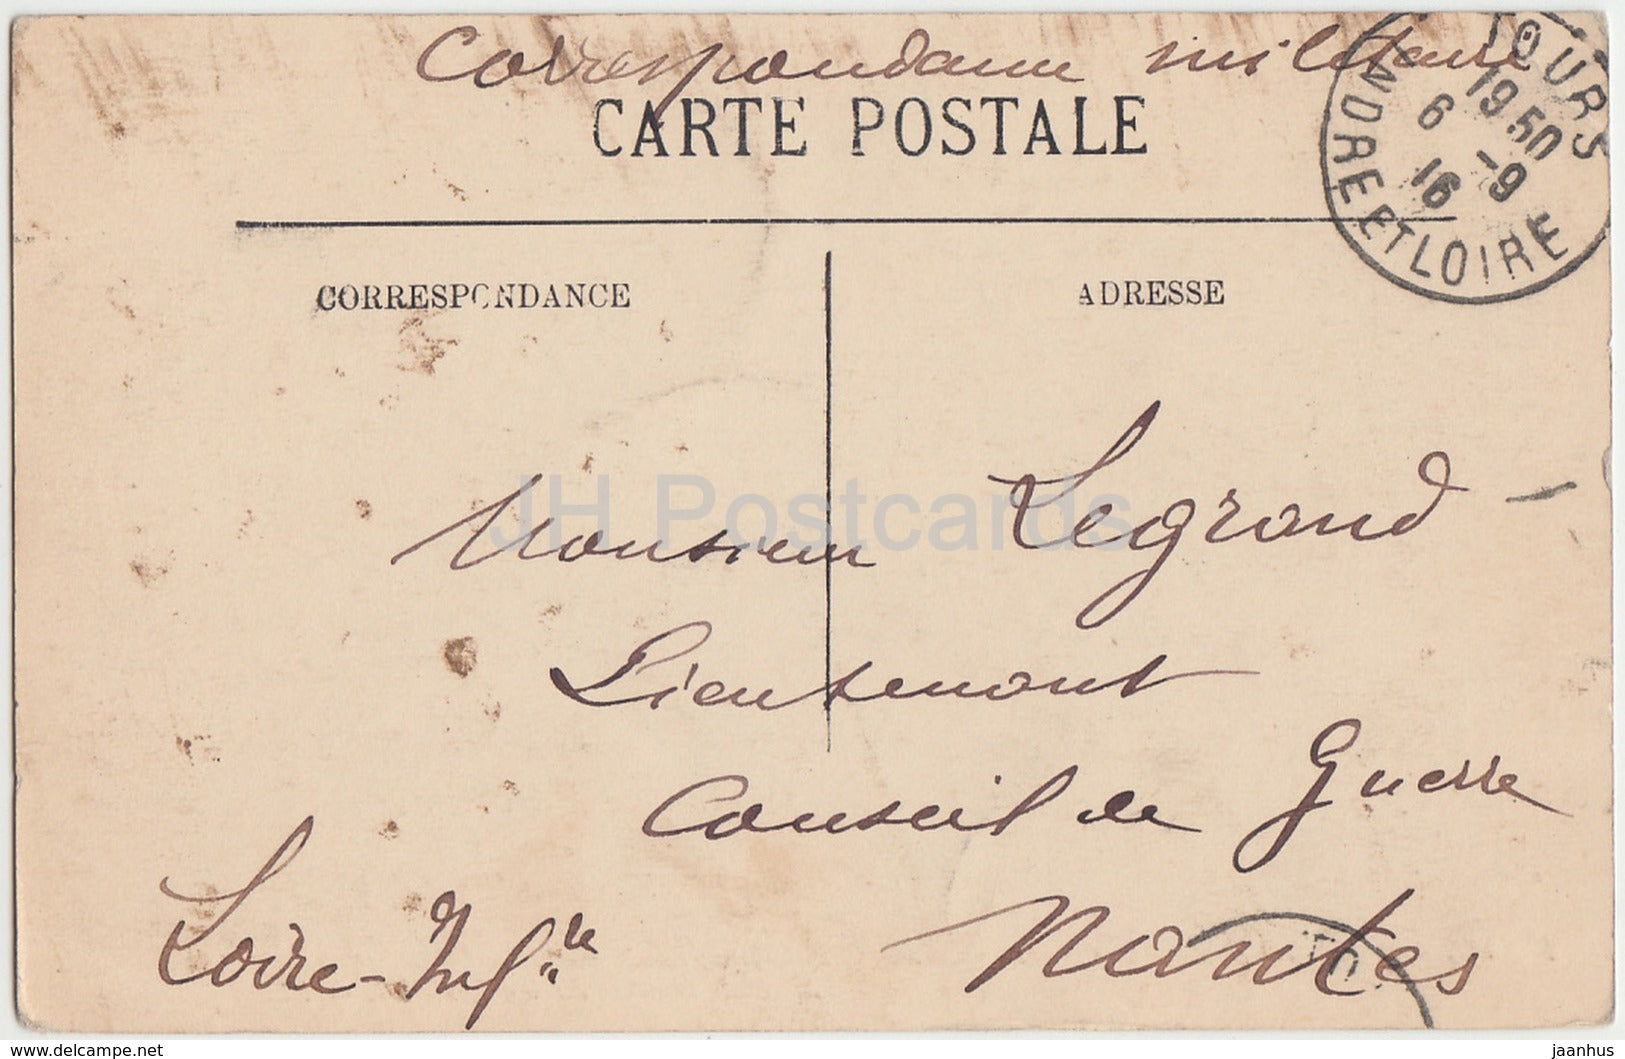 Correspondance militaire
CARTE POSTALE
TOURS
19 50
6 -9
16
INDRE ET LOIRE
CORRESPONDANCE
ADRESSE
JH Postcards
Monsieur Legrand -
Lieutenant
Conseil de Guerre
Nantes
Loire-Inf"re
delcampe.net
jaanhus